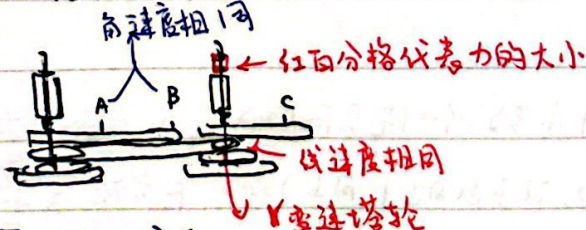 角速度相同
红白分格代表力的大小
A
B
C
线速度相同
变速塔轮